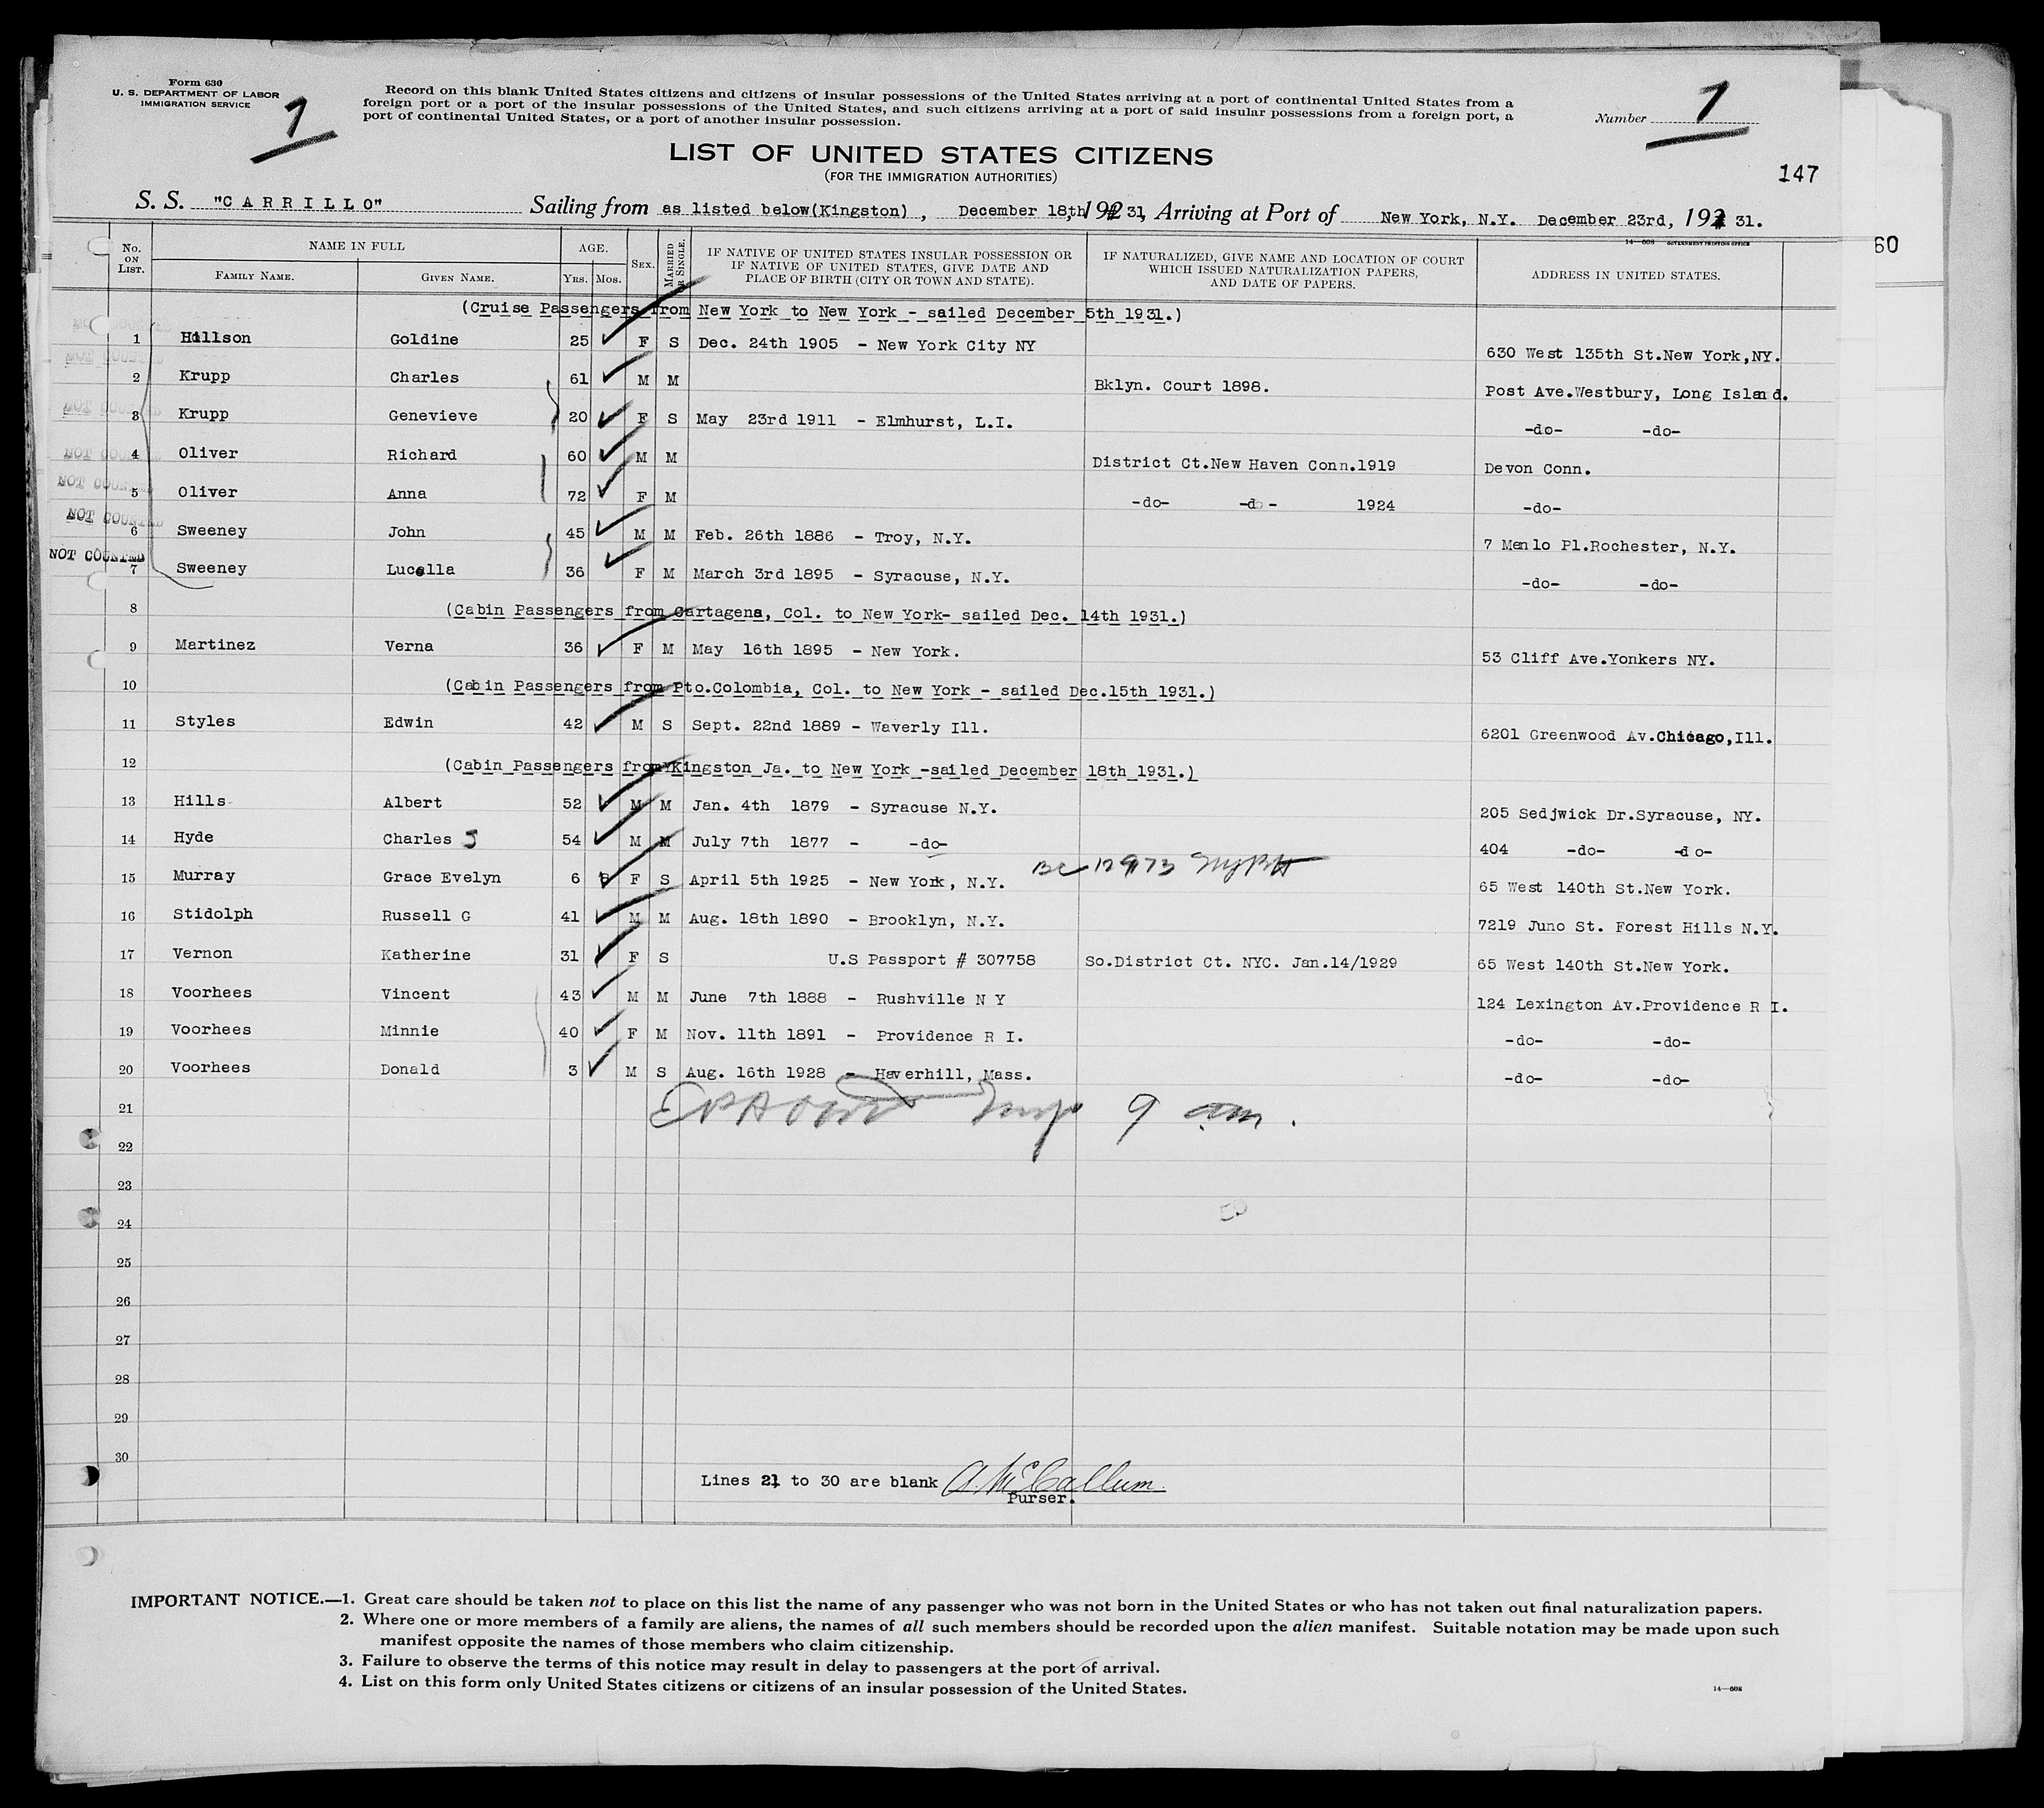 Form 630
U. S. DEPARTMENT OF LABOR
IMMIGRATION SERVICE
1
Record on this blank United States citizens and citizens of insular possessions of the United States arriving at a port of continental United States from a
foreign port or a port of the insular possessions of the United States, and such citizens arriving at a port of said insular possessions from a foreign port, a
port of continental United States, or a port of another insular possession.
Number 1
LIST OF UNITED STATES CITIZENS
(FOR THE IMMIGRATION AUTHORITIES)
147
S. S. "CARRILLO" Sailing from as listed below(Kingston), December 18th, 192 31, Arriving at Port of New York, N.Y. December 23rd, 192 31.
14—608 GOVERNMENT PRINTING OFFICE
60
No. ON LIST. NAME IN FULL FAMILY NAME. GIVEN NAME. AGE. YRS. MOS. SEX. MARRIED OR SINGLE. IF NATIVE OF UNITED STATES INSULAR POSSESSION OR IF NATIVE OF UNITED STATES, GIVE DATE AND PLACE OF BIRTH (CITY OR TOWN AND STATE). IF NATURALIZED, GIVE NAME AND LOCATION OF COURT WHICH ISSUED NATURALIZATION PAPERS, AND DATE OF PAPERS. ADDRESS IN UNITED STATES.
(Cruise Passengers from New York to New York - sailed December 5th 1931.)
1 Hillson Goldine 25 F S Dec. 24th 1905 - New York City NY 630 West 135th St.New York,NY.
2 Krupp Charles 61 M M Bklyn. Court 1898. Post Ave.Westbury, Long Island.
NOT COUNTED 3 Krupp Genevieve 20 F S May 23rd 1911 - Elmhurst, L.I. -do- -do-
NOT COUNTED 4 Oliver Richard 60 M M District Ct.New Haven Conn.1919 Devon Conn.
NOT COUNTED 5 Oliver Anna 72 F M -do- -do- 1924 -do-
NOT COUNTED 6 Sweeney John 45 M M Feb. 26th 1886 - Troy, N.Y. 7 Menlo Pl.Rochester, N.Y.
NOT COUNTED 7 Sweeney Lucella 36 F M March 3rd 1895 - Syracuse, N.Y. -do- -do-
8 (Cabin Passengers from Cartagena, Col. to New York- sailed Dec. 14th 1931.)
9 Martinez Verna 36 F M May 16th 1895 - New York. 53 Cliff Ave.Yonkers NY.
10 (Cabin Passengers from Pto.Colombia, Col. to New York - sailed Dec.15th 1931.)
11 Styles Edwin 42 M S Sept. 22nd 1889 - Waverly Ill. 6201 Greenwood Av.Chicago,Ill.
12 (Cabin Passengers from Kingston Ja. to New York -sailed December 18th 1931.)
13 Hills Albert 52 M M Jan. 4th 1879 - Syracuse N.Y. 205 Sedjwick Dr.Syracuse, NY.
14 Hyde Charles J 54 M M July 7th 1877 - -do- 404 -do- -do-
15 Murray Grace Evelyn 6 8 F S April 5th 1925 - New York, N.Y. 65 West 140th St.New York.
16 Stidolph Russell G 41 M M Aug. 18th 1890 - Brooklyn, N.Y. 7219 Juno St. Forest Hills N.Y.
17 Vernon Katherine 31 F S U.S Passport # 307758 So.District Ct. NYC. Jan.14/1929 65 West 140th St.New York.
18 Voorhees Vincent 43 M M June 7th 1888 - Rushville N Y 124 Lexington Av.Providence R I.
19 Voorhees Minnie 40 F M Nov. 11th 1891 - Providence R I. -do- -do-
20 Voorhees Donald 3 M S Aug. 16th 1928 - Haverhill, Mass. -do- -do-
21 9 am.
22
23
24
25
26
27
28
29
30
Lines 21 to 30 are blank A. McCallum
Purser.
IMPORTANT NOTICE.—1. Great care should be taken not to place on this list the name of any passenger who was not born in the United States or who has not taken out final naturalization papers.
2. Where one or more members of a family are aliens, the names of all such members should be recorded upon the alien manifest. Suitable notation may be made upon such
manifest opposite the names of those members who claim citizenship.
3. Failure to observe the terms of this notice may result in delay to passengers at the port of arrival.
4. List on this form only United States citizens or citizens of an insular possession of the United States.
14—608